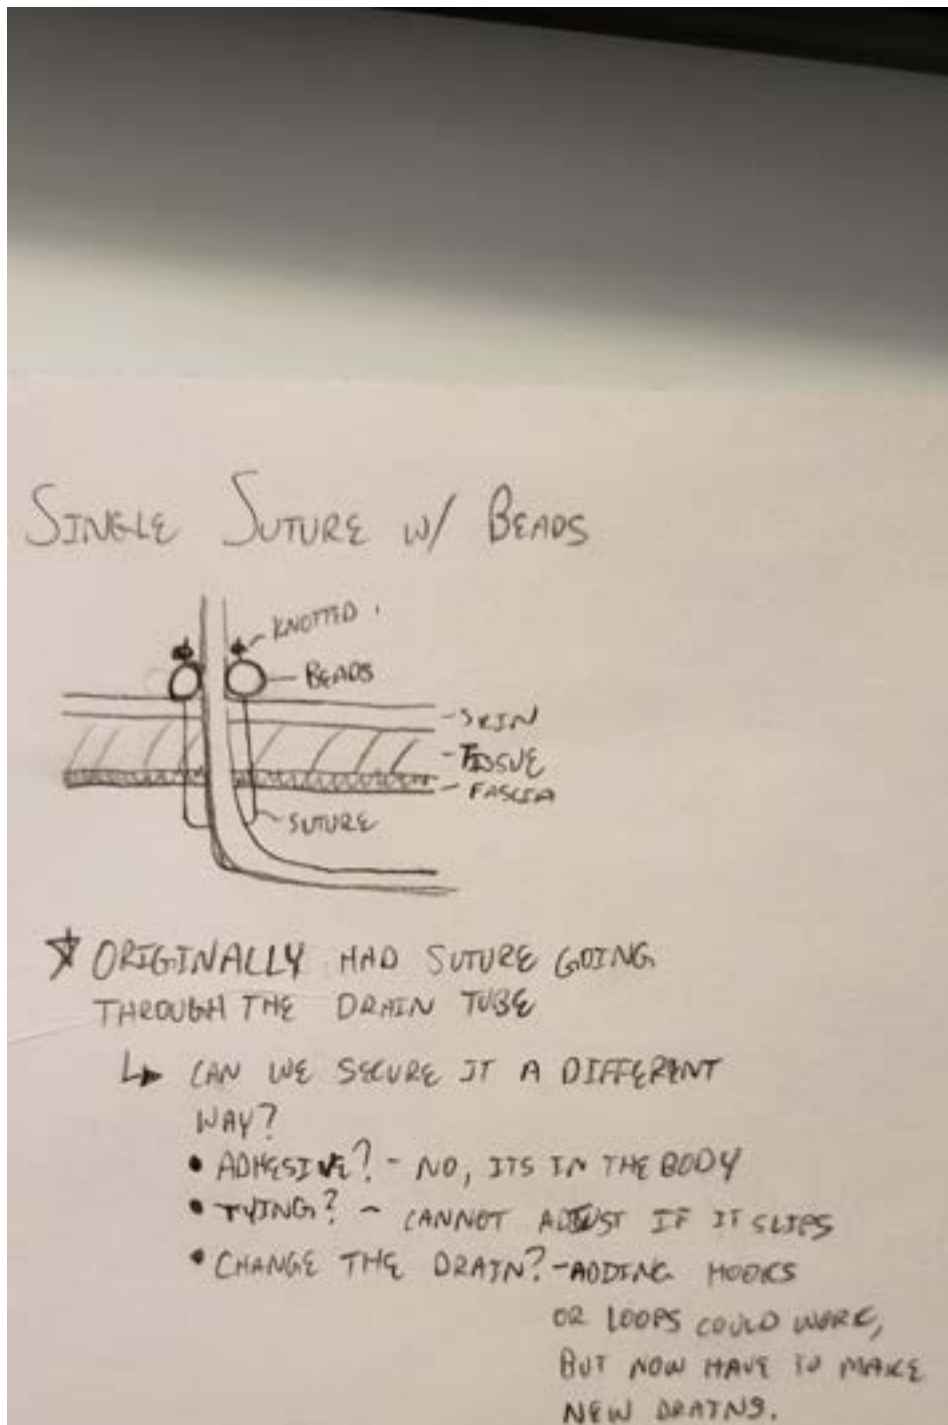 SINGLE SUTURE W/ BEADS
KNOTTED
BEADS
SKIN
TISSUE
FASCIA
SUTURE
ORIGINALLY HAD SUTURE GOING
THROUGH THE DRAIN TUBE
CAN WE SECURE IT A DIFFERENT
WAY?
• ADHESIVE? - NO, ITS IN THE BODY
• TYING? - CANNOT ADJUST IF IT SLIPS
• CHANGE THE DRAIN? - ADDING HOOKS
OR LOOPS COULD WORK,
BUT NOW HAVE TO MAKE
NEW DRAINS.